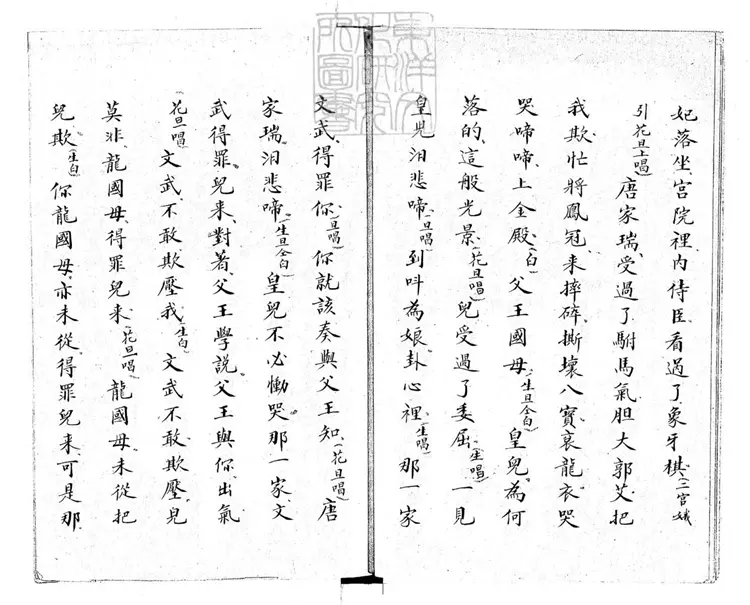 妃落坐、宮院裡、內侍臣、看過了、象牙棋、(二宮娥
引花旦上唱)唐家瑞、受過了、駙馬氣、胆大郭艾、把
我欺、忙將鳳冠、来摔碎、撕壞八寶、衮龍衣、哭
哭啼啼、上金殿、(白)父王國母、(生旦仝白)皇兒、為何
落的、這般光景、(花旦唱)兒受過了委屈、(生唱)一見
皇兒泪悲啼、(旦唱)到呌為娘、卦心裡、(生唱)那一家
文武、得罪你、(旦唱)你就該、奏與父王知、(花旦唱)唐
家瑞、泪悲啼。(生旦仝白)皇兒不必慟哭。那一家文
武得罪、兒来、對着父王學說、父王與你、出氣
(花旦唱)文武、不敢欺壓我、(生白)文武不敢、欺壓、兒
莫非、龍國母、得罪兒来、(花旦唱)龍國母、未從把
兒欺、(生白)你龍國母、亦未從、得罪兒来、可是那